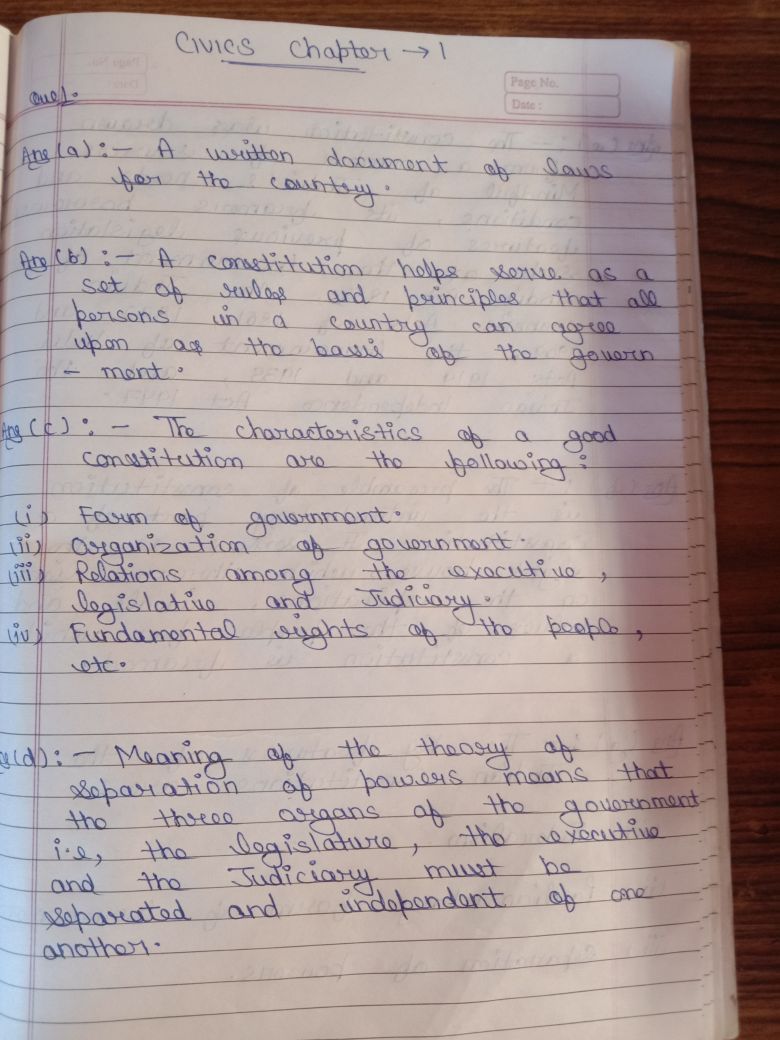 CIVICS Chapter → 1
Page No.
Date :
Que 1.
Ans (a) : - A written document of laws
for the country.
Ans (b) : - A constitution helps serve as a
set of rules and principles that all
persons in a country can agree
upon as the basis of the govern
- ment.
Ans (c) : - The characteristics of a good
constitution are the following :
(i) Farm of government.
(ii) Organization of government.
(iii) Relations among the executive,
legislative and Judiciary.
(iv) Fundamental rights of the people,
etc.
(d) : - Meaning of the theory of
separation of powers means that
the three organs of the government
i.e, the legislature, the executive
and the Judiciary must be
separated and independent of one
another.